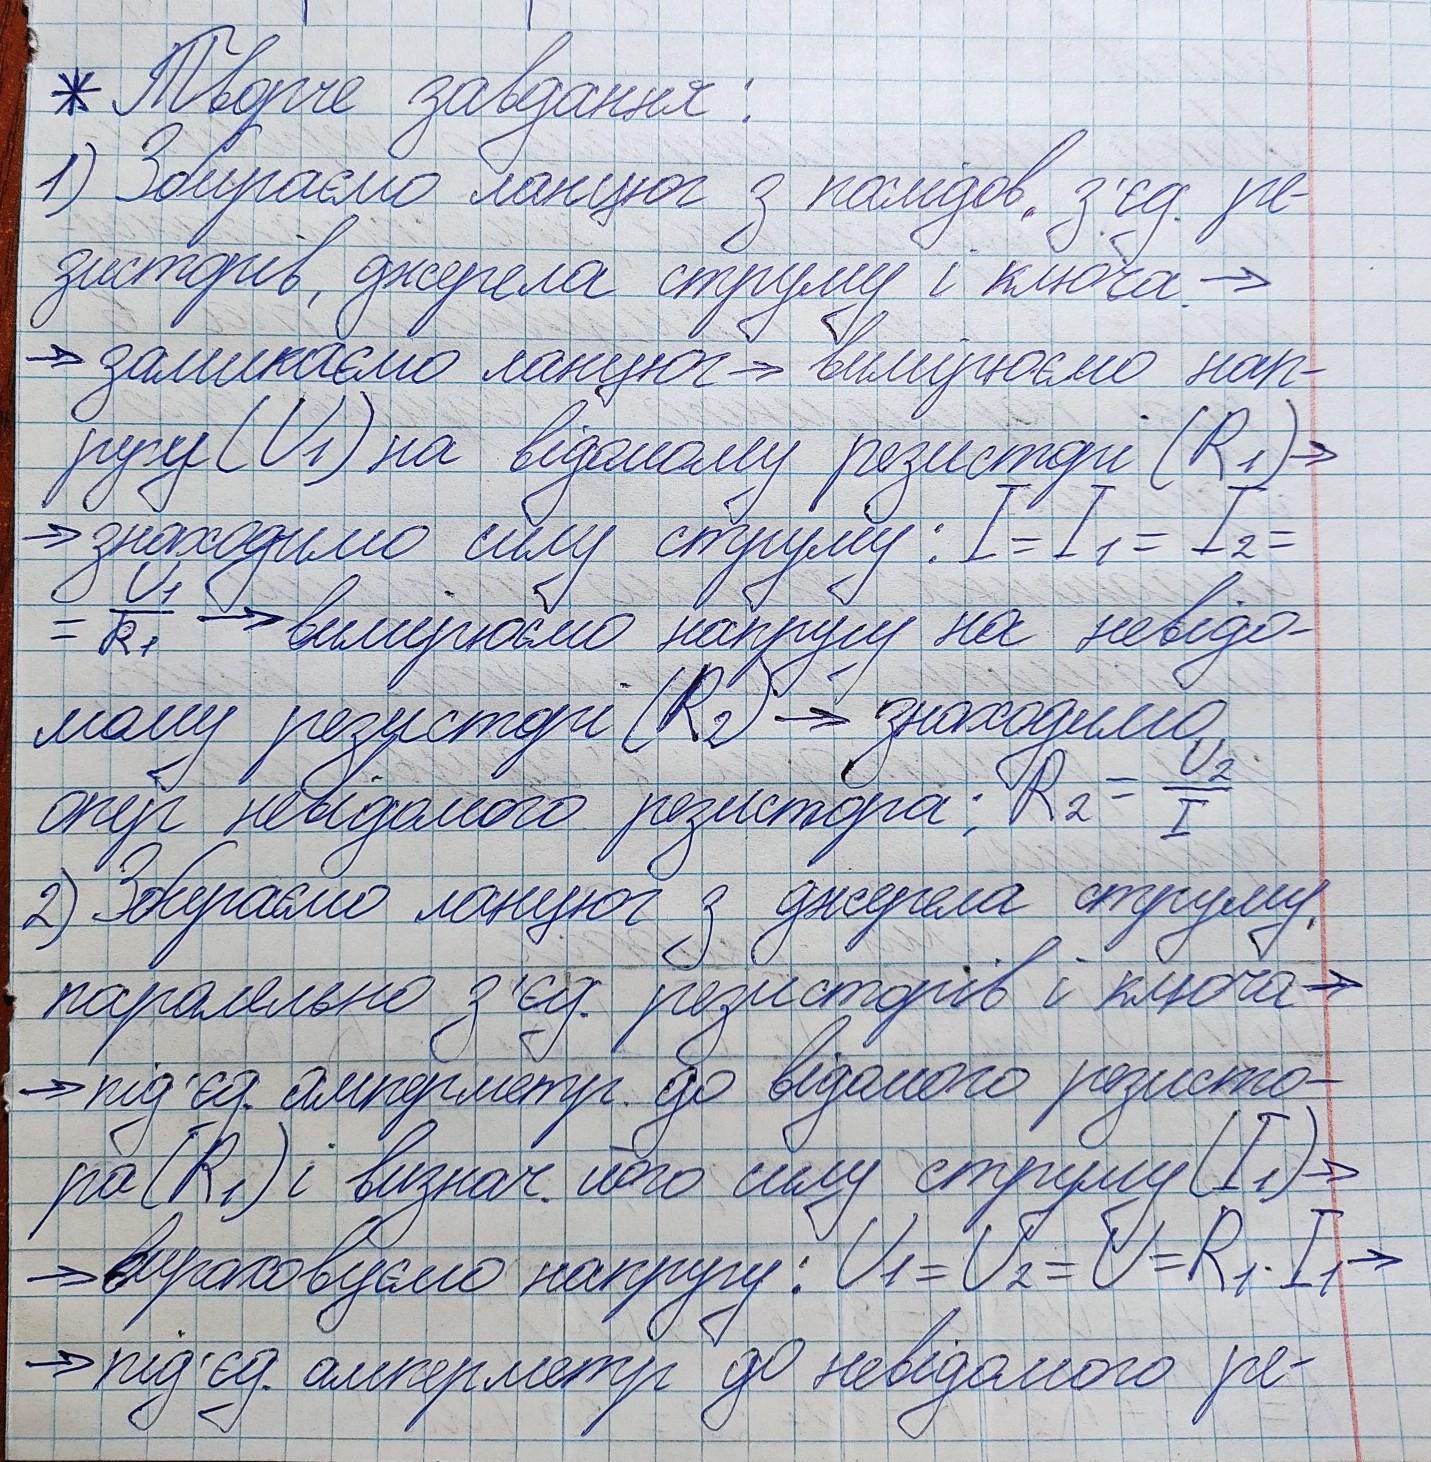 * Творче завдання:
1) Збираємо ланцюг з послідов. з'єд. ре-
зисторів, джерела струму і ключа →
→ замикаємо ланцюг → вимірюємо нап-
ругу (U₁) на відомому резисторі (R₁) →
→ знаходимо силу струму: I = I₁ = I₂ =
= U₁/R₁ → вимірюємо напругу на невідо-
мому резисторі (R₂) → знаходимо
опір невідомого резистора: R₂ = U₂/I
2) Збираємо ланцюг з джерела струму,
паралельно з'єд. резисторів і ключа →
→ під'єд. амперметр до відомого резисто-
ра (R₁) і визнач. його силу струму (I₁) →
→ вираховуємо напругу: U₁ = U₂ = U = R₁ · I₁ →
→ під'єд. амперметр до невідомого ре-